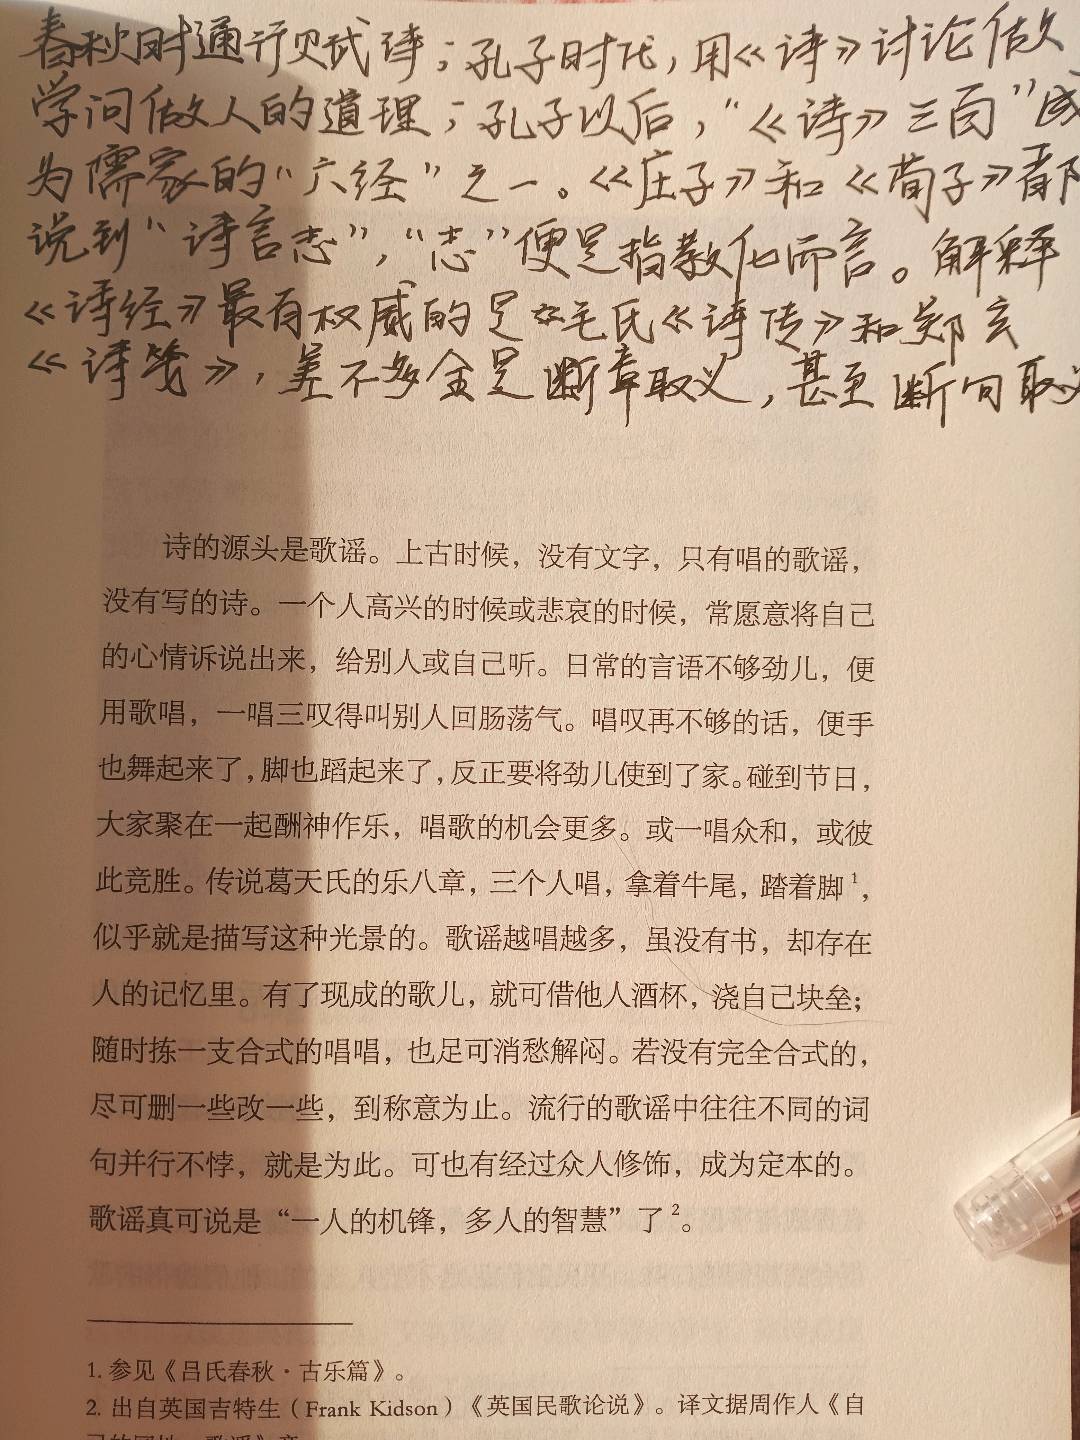 春秋时通行赋诗；孔子时代，用《诗》讨论做
学问做人的道理；孔子以后，“《诗》三百”成
为儒家的“六经”之一。《庄子》和《荀子》都
说到“诗言志”，“志”便是指教化而言。解释
《诗经》最有权威的是毛氏《诗传》和郑玄
《诗笺》，差不多全是断章取义，甚至断句取义
诗的源头是歌谣。上古时候，没有文字，只有唱的歌谣，
没有写的诗。一个人高兴的时候或悲哀的时候，常愿意将自己
的心情诉说出来，给别人或自己听。日常的言语不够劲儿，便
用歌唱，一唱三叹得叫别人回肠荡气。唱叹再不够的话，便手
也舞起来了，脚也蹈起来了，反正要将劲儿使到了家。碰到节日，
大家聚在一起酬神作乐，唱歌的机会更多。或一唱众和，或彼
此竞胜。传说葛天氏的乐八章，三个人唱，拿着牛尾，踏着脚1，
似乎就是描写这种光景的。歌谣越唱越多，虽没有书，却存在
人的记忆里。有了现成的歌儿，就可借他人酒杯，浇自己块垒；
随时拣一支合式的唱唱，也足可消愁解闷。若没有完全合式的，
尽可删一些改一些，到称意为止。流行的歌谣中往往不同的词
句并行不悖，就是为此。可也有经过众人修饰，成为定本的。
歌谣真可说是“一人的机锋，多人的智慧”了2。
1. 参见《吕氏春秋·古乐篇》。
2. 出自英国吉特生（Frank Kidson）《英国民歌论说》。译文据周作人《自